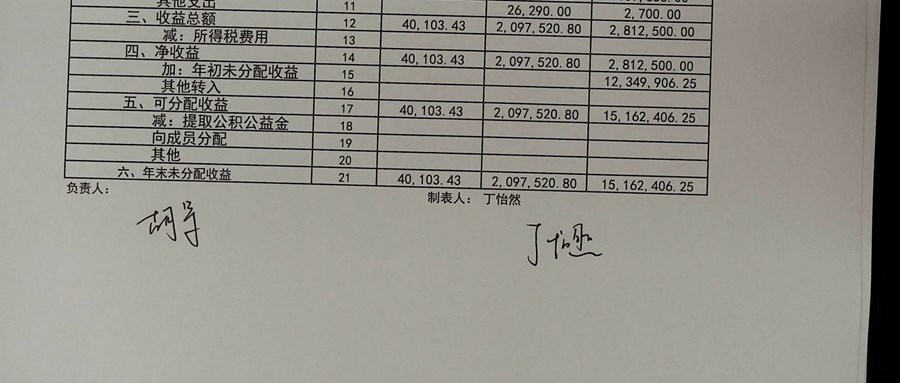 其他支出 11 26,290.00 2,700.00
三、收益总额 12 40,103.43 2,097,520.80 2,812,500.00
减：所得税费用 13
四、净收益 14 40,103.43 2,097,520.80 2,812,500.00
加：年初未分配收益 15 12,349,906.25
其他转入 16
五、可分配收益 17 40,103.43 2,097,520.80 15,162,406.25
减：提取公积公益金 18
向成员分配 19
其他 20
六、年末未分配收益 21 40,103.43 2,097,520.80 15,162,406.25
负责人： 制表人： 丁怡然
丁怡然